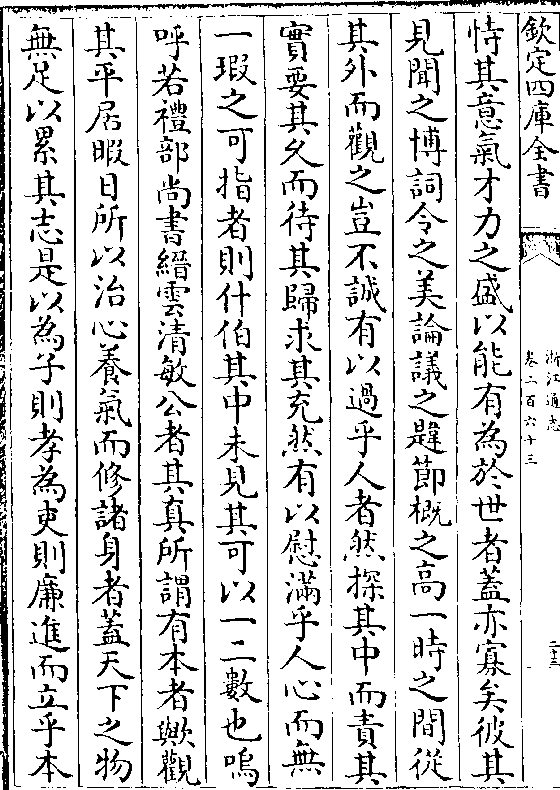 欽定四庫全書
浙江通志
卷二百六十三
二十三
恃其意氣才力之盛以能有為於世者蓋亦寡矣彼其
見聞之博詞令之美論議之韙節概之高一時之間從
其外而觀之豈不誠有以過乎人者然探其中而責其
實要其久而待其歸求其充然有以慰滿乎人心而無
一瑕之可指者則什伯其中未見其可以一二數也嗚
呼若禮部尚書縉雲清敏公者其真所謂有本者歟觀
其平居暇日所以治心養氣而修諸身者蓋天下之物
無足以累其志是以為子則孝為吏則廉進而立乎本